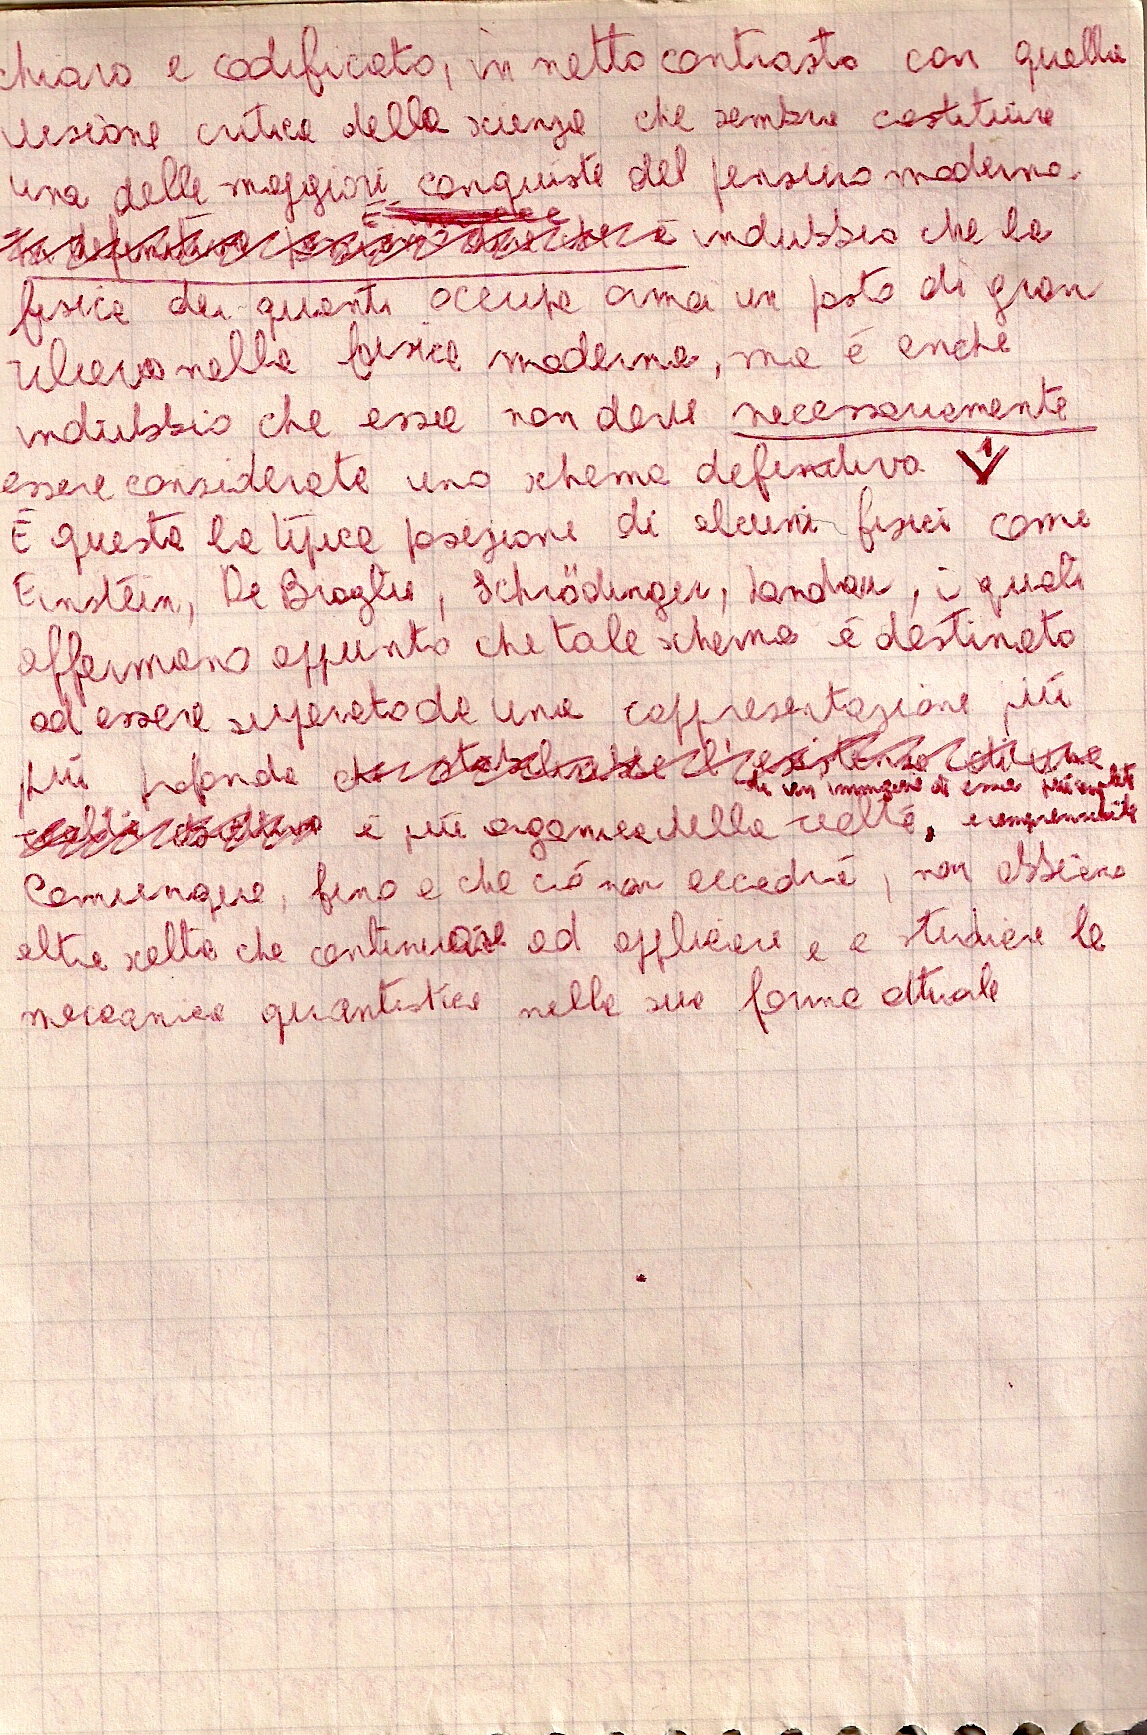 chiaro e codificato, in netto contrasto con quella
visione critica della scienza che sembra costituire
una delle maggiori conquiste del pensiero moderno.
È indubbio che la
fisica dei quanti occupa ormai un posto di gran
rilievo nella fisica moderna, ma é anche
indubbio che essa non deve necessariamente
essere considerata uno schema definitivo 1
È questa la tipica posizione di alcuni fisici come
Einstein, De Broglie, Schrödinger, Landau, i quali
affermano appunto che tale schema é destinato
ad essere superato da una rappresentazione più
più profonda
di un immagine di essa più
e più organica della realtá, e comprensibile
Comunque, fino a che ció non accadrá, non abbiamo
altra scelta che continuare ad applicare e a studiare la
meccanica quantistica nella sua forma attuale